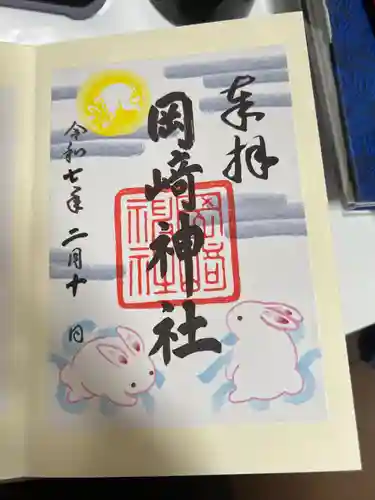 奉拝
岡崎神社
岡崎神社
令和七年 二月十 日